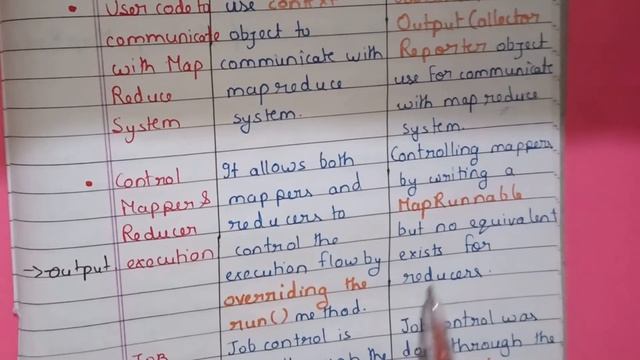 User code to
communicate
with Map
Reduce
System
use context
object to
communicate with
mapreduce
system.
Output Collector
Reporter object
use for communicate
with map reduce
system.
Control
Mapper &
Reducer
execution
→ output
It allows both
mappers and
reducers to
control the
execution flow by
overriding the
run() method.
Controlling mappers
by writing a
MapRunnable
but no equivalent
exists for
reducers.
Job
Job control is
the
Job control was
through the